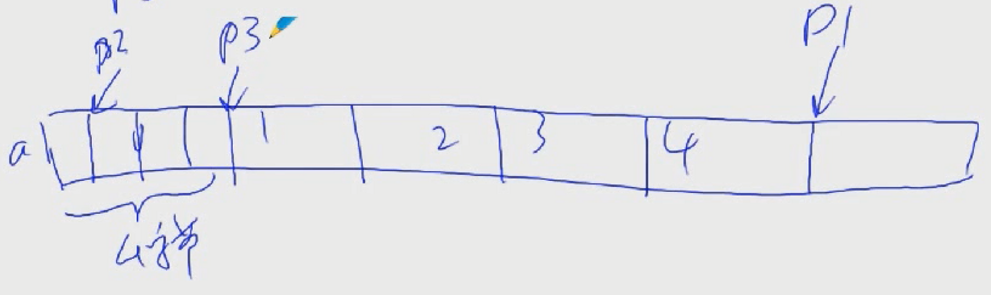 p2 p3 P1
a 1 2 3 4
4字节